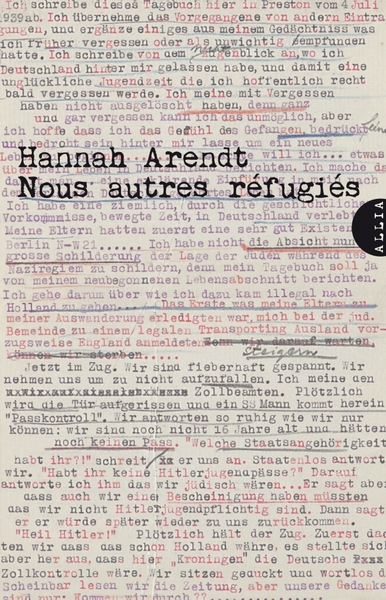 Ich schreibe dieses Tagebuch hier in Preston vom 4 Juli
1939ab. Ich übernehme das Vorgegangene von andern Eintra
gungen, und ergänze einiges aus meinem Gedächtniss was
ich früher vergessen oder als unwichtig empfunden
hatte. Ich schreibe von dem Augenblick an, wo ich
Deutschland hinter mir gelassen habe, und damit eine
unglückliche Jugendzeit die ich hoffentlich recht
bald vergessen werde. Ich meine mit Vergessen
haben nicht ausgelöscht haben, denn ganz
und gar vergessen kann ich das unmöglich, aber
ich hoffe dass ich das Gefühl des Gefangen, bedrückt
und bedroht sein hinter mir lasse um ein neues
will ich... etwas
Hannah Arendt
Nous autres réfugiés
ALLIA
Ich habe eine ziemlich, durch die geschichtliche
Vorkommnisse, bewegte Zeit, in Deutschland verlebt
Meine Eltern hatten zuerst eine sehr gut Existen
Berlin N-W 21...... Ich habe nicht die Absicht nun
grosse Schilderung der Lage der Juden während des
Naziregiem zu schildern, denn mein Tagebuch soll ja
von meinem neubegonnenen Lebensabschnitt berichten.
Ich gehe darum über wie ich dazu kam illegal nach
Holland zu gehen.....Das Erste was meine Eltern zu
meiner Auswanderung erledigten war, mich bei der jüd.
Gemeinde zu einem/legalen Transporting Ausland vor-
zugsweise England anmeldeten. Wenn wir darauf warten
können wir sterben.....
Jetzt im Zug. Wir sind fieberhaft gespannt. Wir
nehmen uns um zu nicht aufzufallen. Ich meine den
Zollbeamten. Plötzlich
wird die Tür aufgerissen und ein SS Mann kommt herein
"Passkontroll". Wir antworten so ruhig wie wir nur
können; wir sind noch nicht 16 Jahre alt und hätten
noch keinen Pass. "Welche Staatsangehörigkeit
habt ihr?!" schreit er uns an. Staatenlos antworten
wir. "Habt ihr keine Hitlerjugenpässe?" Darauf
antworte ich ihm das wir jüdisch wären...Er sagt aber
dass auch wir eine Bescheinigung haben müssten
das wir nicht Hitlerjugendpflichtig sind. Dann sagt
er er würde später wieder zu uns zurückkommen.
"Heil Hitler!" Plötzlich hält der Zug. Zuerst dac
ten wir dass das schon Holland währe, es stellte sich
aber her aus, dass hier "Kroningen" die Deutsche
Zollkontrolle wäre. Wir sitzen geduckt und wortlos d
Scheinbar lesen wir die Zeitung, aber unsere Gedanke